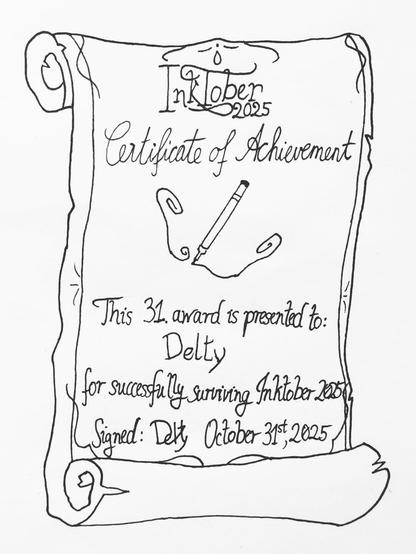 InkTober
2025
Certificate of Achievement
This 31. award is presented to:
Delty
for successfully surviving Inktober 2025
Signed: Delty October 31st, 2025